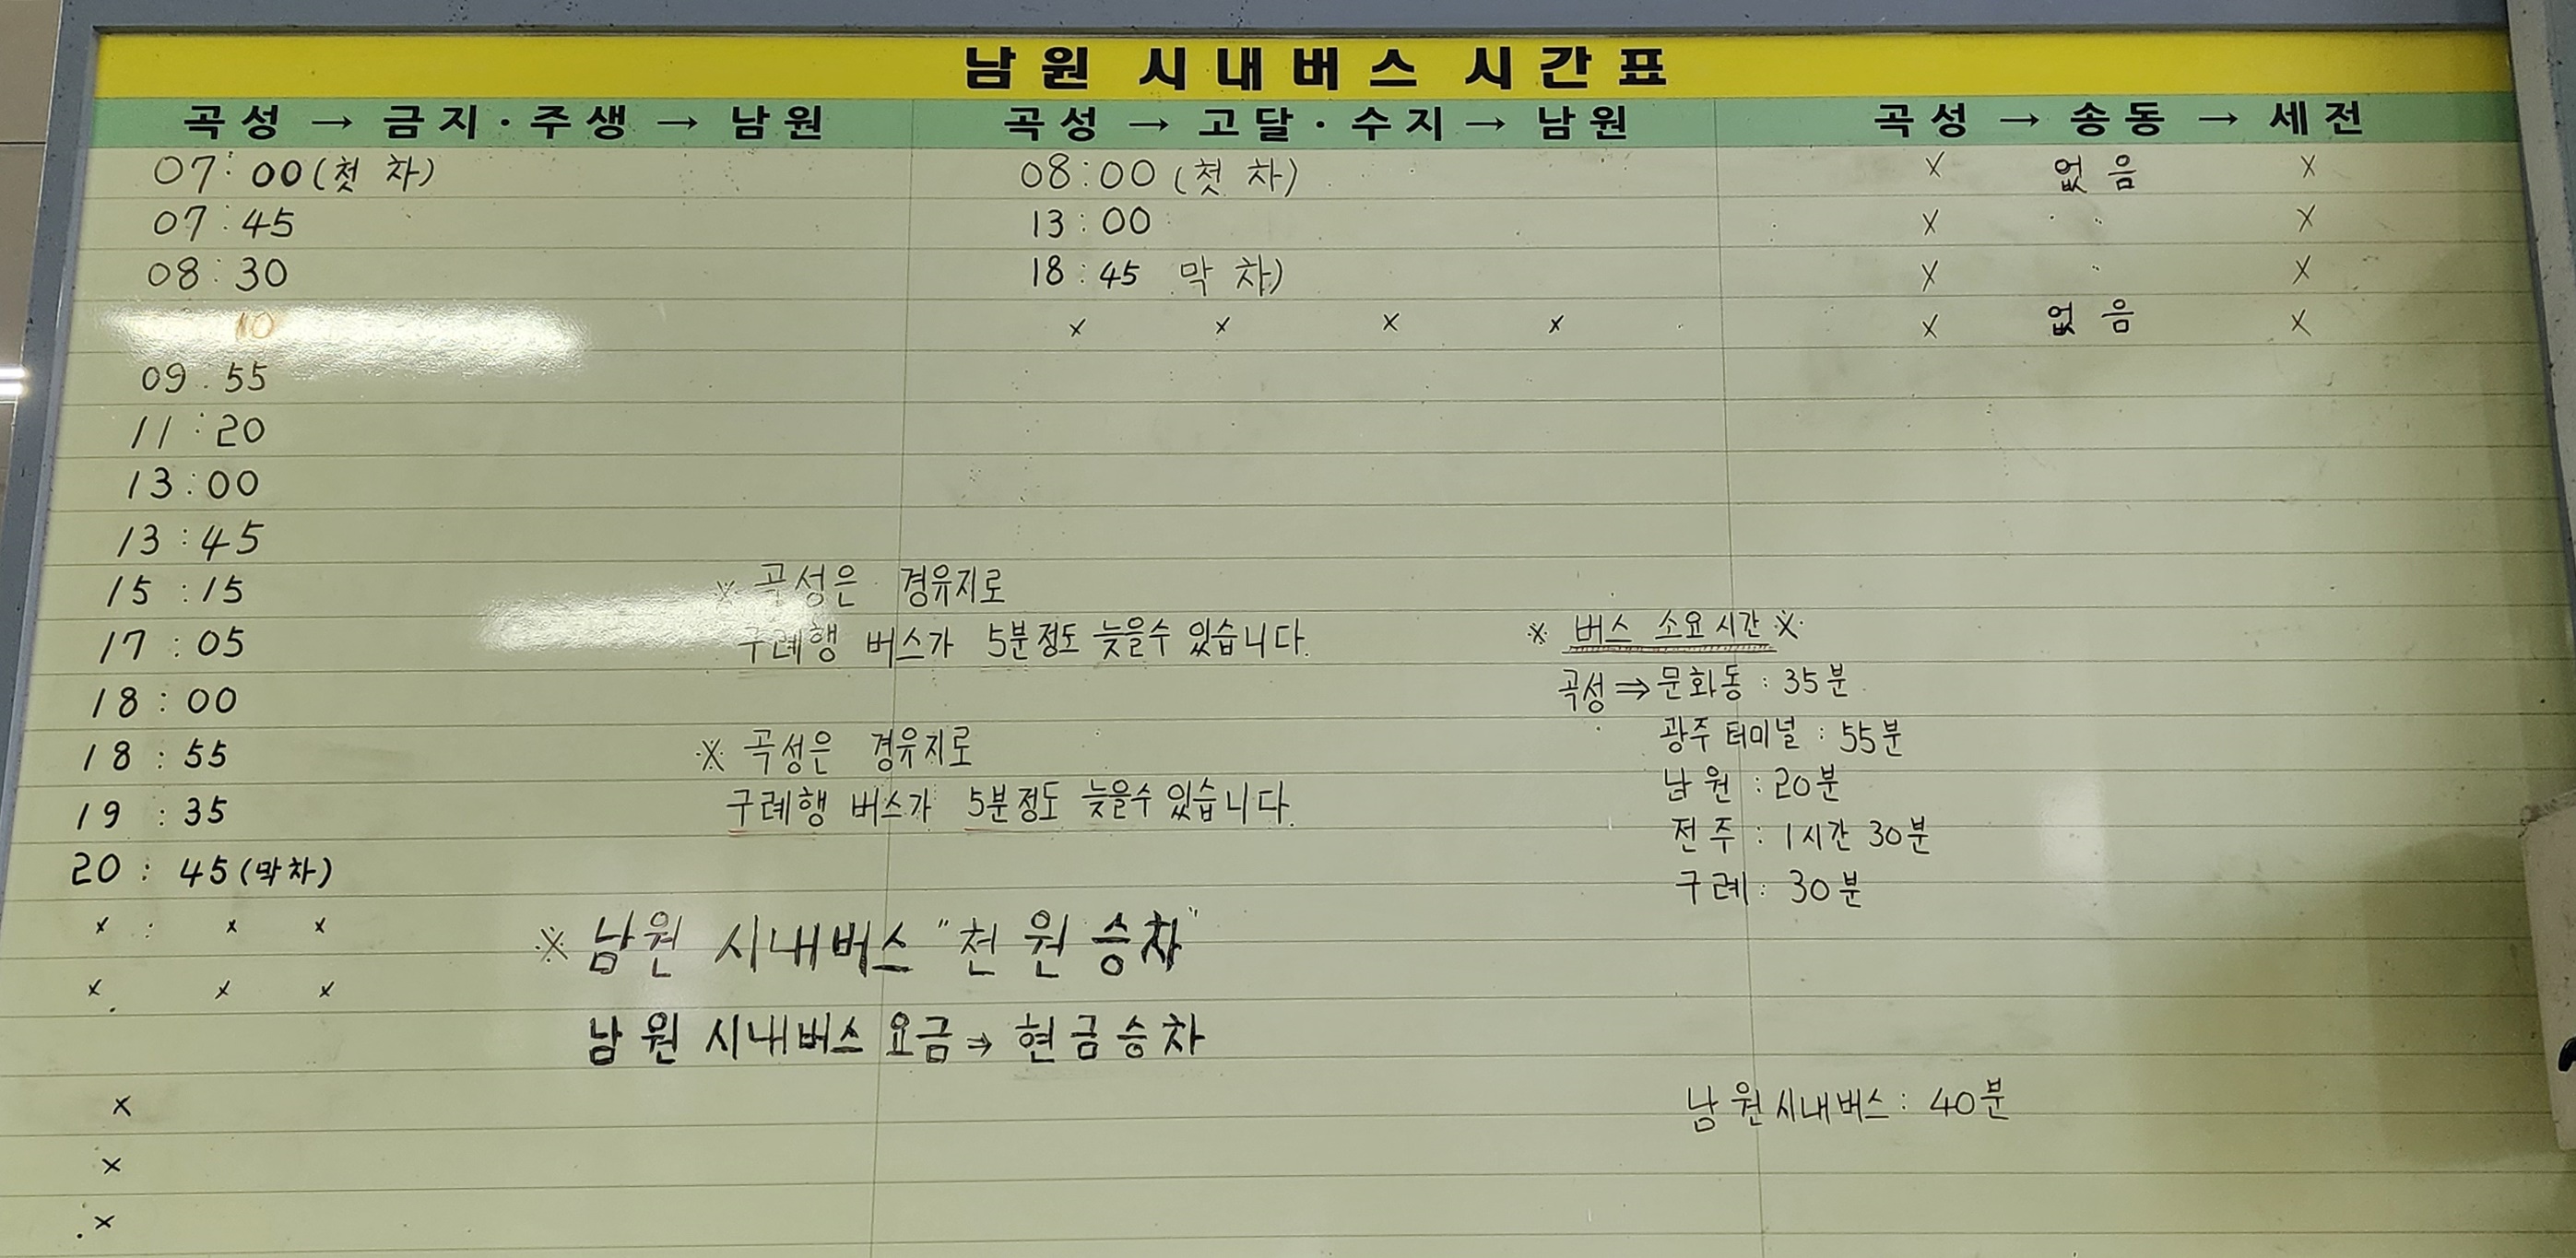 남원 시내버스 시간표
곡성 → 금지·주생 → 남원
곡성 → 고달·수지 → 남원
곡성 → 송동 → 세전
07:00(첫 차)
08:00 (첫 차)
X 없음 X
07:45
13:00
X X
08:30
18:45 막 차)
X X
10
x x x x
X 없음 X
09:55
11:20
13:00
13:45
15:15
17:05
18:00
18:55
19:35
20:45(막차)
x : x x
x x x
x
x
x
※ 곡성은 경유지로
구례행 버스가 5분정도 늦을수 있습니다.
※ 곡성은 경유지로
구례행 버스가 5분정도 늦을수 있습니다.
※ 남원 시내버스 "천원 승차"
남원 시내버스 요금 → 현금승차
※ 버스 소요시간 ※
곡성 ⇒ 문화동 : 35분
광주터미널 : 55분
남원 : 20분
전주 : 1시간 30분
구례 : 30분
남원시내버스 : 40분